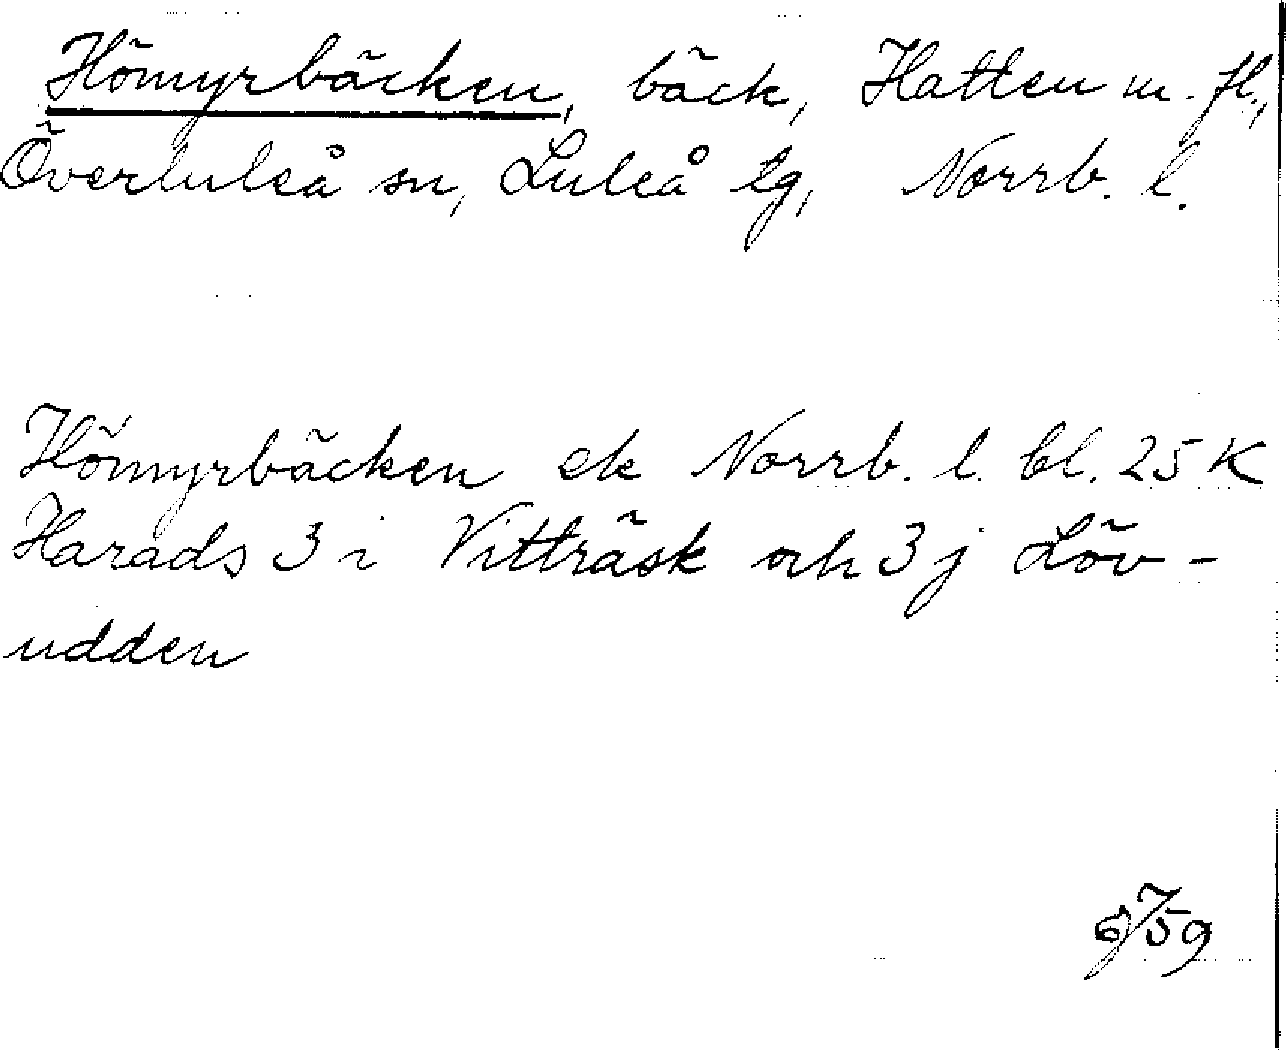 Hömyrbäcken, bäck, Hatten m. fl.,
Överluleå sn, Luleå tg, Norrb. l.
Hömyrbäcken ek Norrb. l. bl. 25 K
Harads 3 i Vitträsk och 3 j Löv-
udden